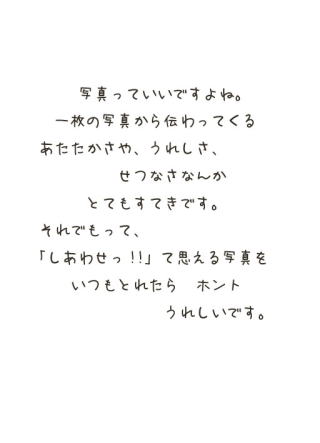 写真っていいですよね。
一枚の写真から伝わってくる
あたたかさや、うれしさ、
せつなさなんか
とてもすてきです。
それでもって、
「しあわせっ!!」て思える写真を
いつもとれたら　ホント
うれしいです。